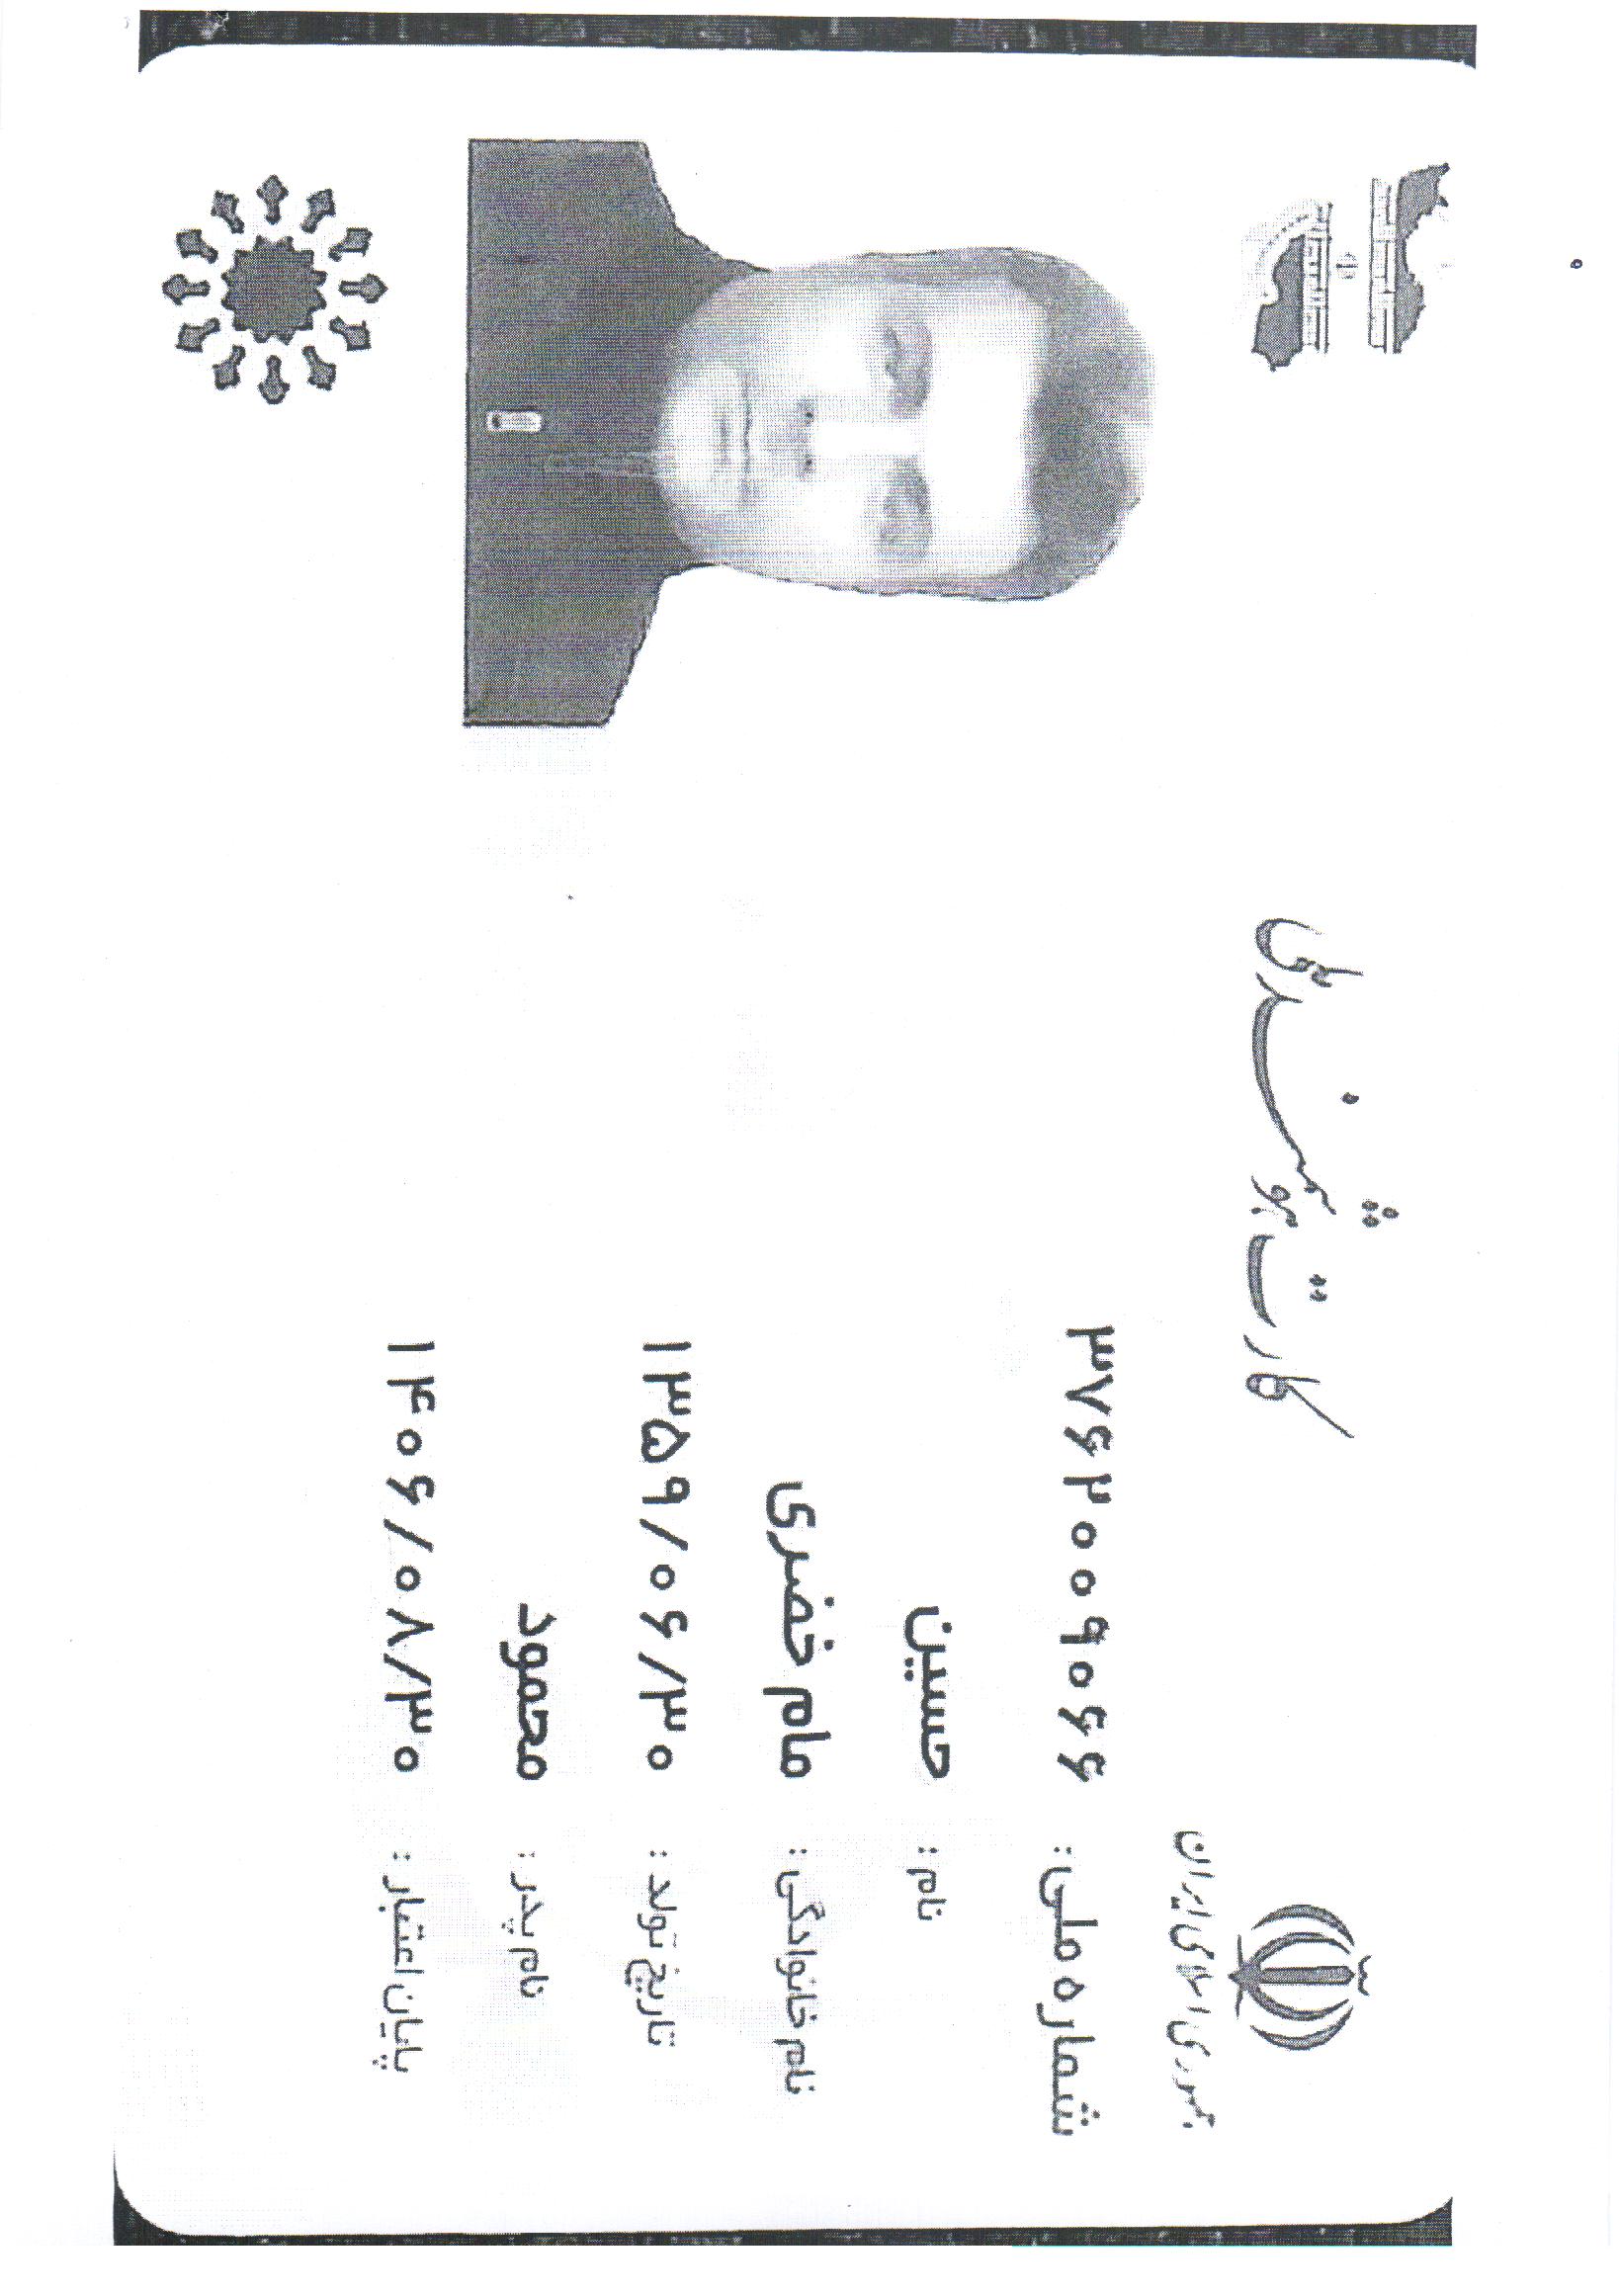 جمهوری اسلامی ایران
کارت هوشمند ملی
شماره ملی: ۳۷۶۲۰۰۹۰۶۶
نام : حسین
نام خانوادگی : مام خضری
تاریخ تولد : ۱۳۵۹/۰۶/۳۰
نام پدر : محمود
پایان اعتبار : ۱۴۰۶/۰۸/۳۰